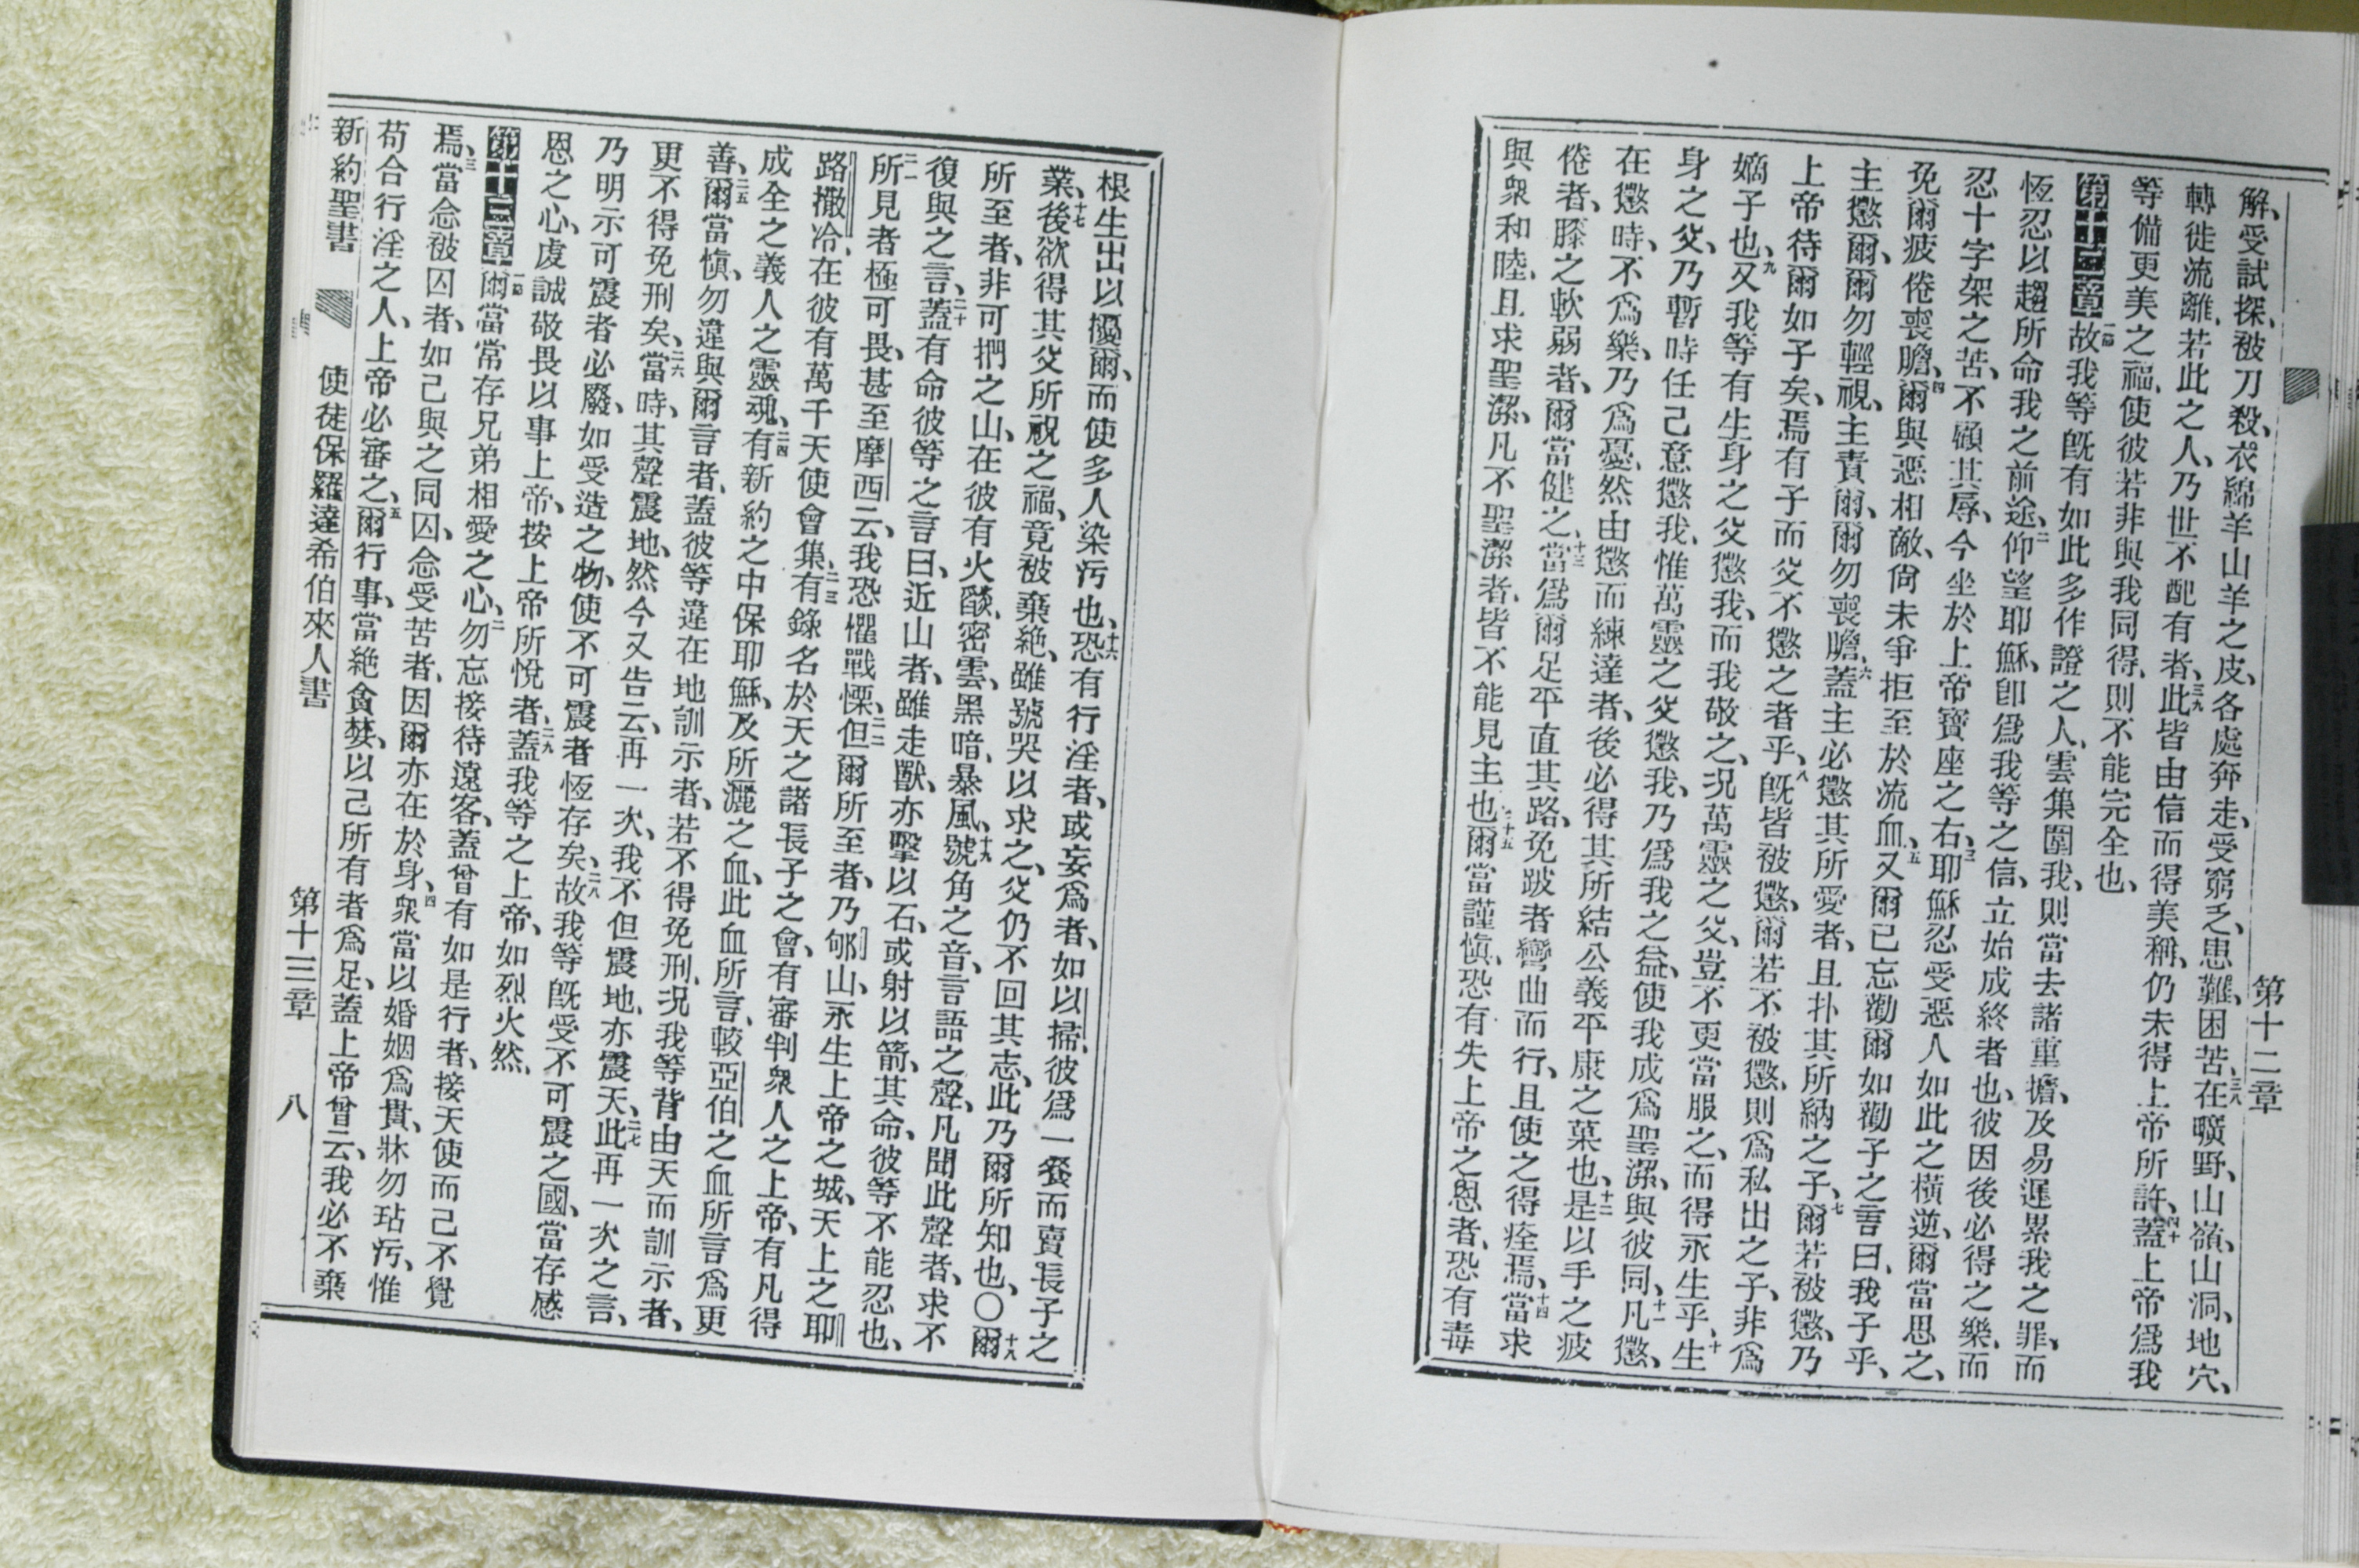 第十二章
解、受試探、被刀殺、衣綿羊山羊之皮、各處奔走、受窮乏、患難、困苦、三八在曠野、山嶺、山洞、地穴、
轉徙流離、若此之人、乃世不配有者、三九此皆由信而得美稱、仍未得上帝所許、四十蓋上帝爲我
等備更美之福、使彼若非與我同得、則不能完全也、
第十二章一節故我等旣有如此多作證之人、雲集圍我、則當去諸重擔、及易遲累我之罪、而
恆忍以趨所命我之前途、二仰望耶穌、卽爲我等之信、立始成終者也、彼因後必得之樂、而
忍十字架之苦、不顧其辱、今坐於上帝寶座之右、三耶穌忍受惡人如此之橫逆、爾當思之、
免爾疲倦喪膽、四爾與惡相敵、尙未爭拒至於流血、五又爾已忘勸爾如勸子之言曰、我子乎、
主懲爾、爾勿輕視、主責爾、爾勿喪膽、六蓋主必懲其所愛者、且扑其所納之子、七爾若被懲、乃
上帝待爾如子矣、焉有子而父不懲之者乎、八旣皆被懲、爾若不被懲、則爲私出之子、非爲
嫡子也、九又我等有生身之父懲我、而我敬之、況萬靈之父、豈不更當服之、而得永生乎、十生
身之父、乃暫時任己意懲我、惟萬靈之父懲我、乃爲我之益、使我成爲聖潔、與彼同、十一凡懲、
在懲時、不爲樂、乃爲憂、然由懲而練達者、後必得其所結公義平康之菓也、十二是以手之疲
倦者、膝之軟弱者、爾當健之、十三當爲爾足平直其路、免跛者彎曲而行、且使之得痊焉、十四當求
與衆和睦、且求聖潔、凡不聖潔者、皆不能見主也、十五爾當謹愼、恐有失上帝之恩者、恐有毒
根生出以擾爾、而使多人染污也、十六恐有行淫者、或妄爲者、如以掃、彼爲一餐而賣長子之
業、十七後欲得其父所祝之福、竟被棄絕、雖號哭以求之、父仍不回其志、此乃爾所知也、〇十八爾
所至者、非可捫之山、在彼有火燄、密雲、黑暗、暴風、十九號角之音、言語之聲、凡聞此聲者、求不
復與之言、二十蓋有命彼等之言曰、近山者、雖走獸、亦擊以石、或射以箭、其命、彼等不能忍也、
二一所見者極可畏、甚至摩西云、我恐懼戰慄、二二但爾所至者、乃郇山、永生上帝之城、天上之耶
路撒冷、在彼有萬千天使會集、二三有錄名於天之諸長子之會、有審判衆人之上帝、有凡得
成全之義人之靈魂、二四有新約之中保耶穌、及所灑之血、此血所言、較亞伯之血所言爲更
善、二五爾當愼、勿違與爾言者、蓋彼等違在地訓示者、若不得免刑、況我等背由天而訓示者、
更不得免刑矣、二六當時、其聲震地、然今又告云、再一次、我不但震地、亦震天、二七此再一次之言、
乃明示可震者必廢、如受造之物、使不可震者恆存矣、二八故我等旣受不可震之國、當存感
恩之心、虔誠敬畏以事上帝、按上帝所悅者、二九蓋我等之上帝、如烈火然、
第十三章一節爾當常存兄弟相愛之心、二勿忘接待遠客、蓋曾有如是行者、接天使而己不覺
焉、三當念被囚者、如己與之同囚、念受苦者、因爾亦在於身、四衆當以婚姻爲貴、牀勿玷污、惟
苟合行淫之人、上帝必審之、五爾行事、當絕貪婪、以己所有者爲足、蓋上帝曾云、我必不棄
新約聖書　使徒保羅達希伯來人書　第十三章　八